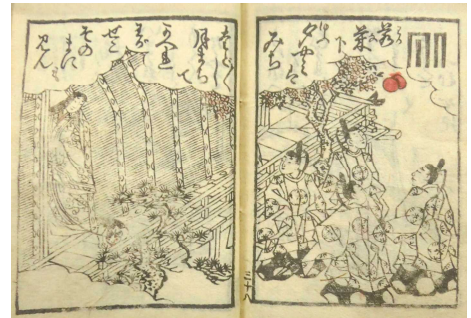 若菜
下
夕やみは
みち
たど〱し
月まち
て
かへれ
わが
せこ
その
まに
も
みん